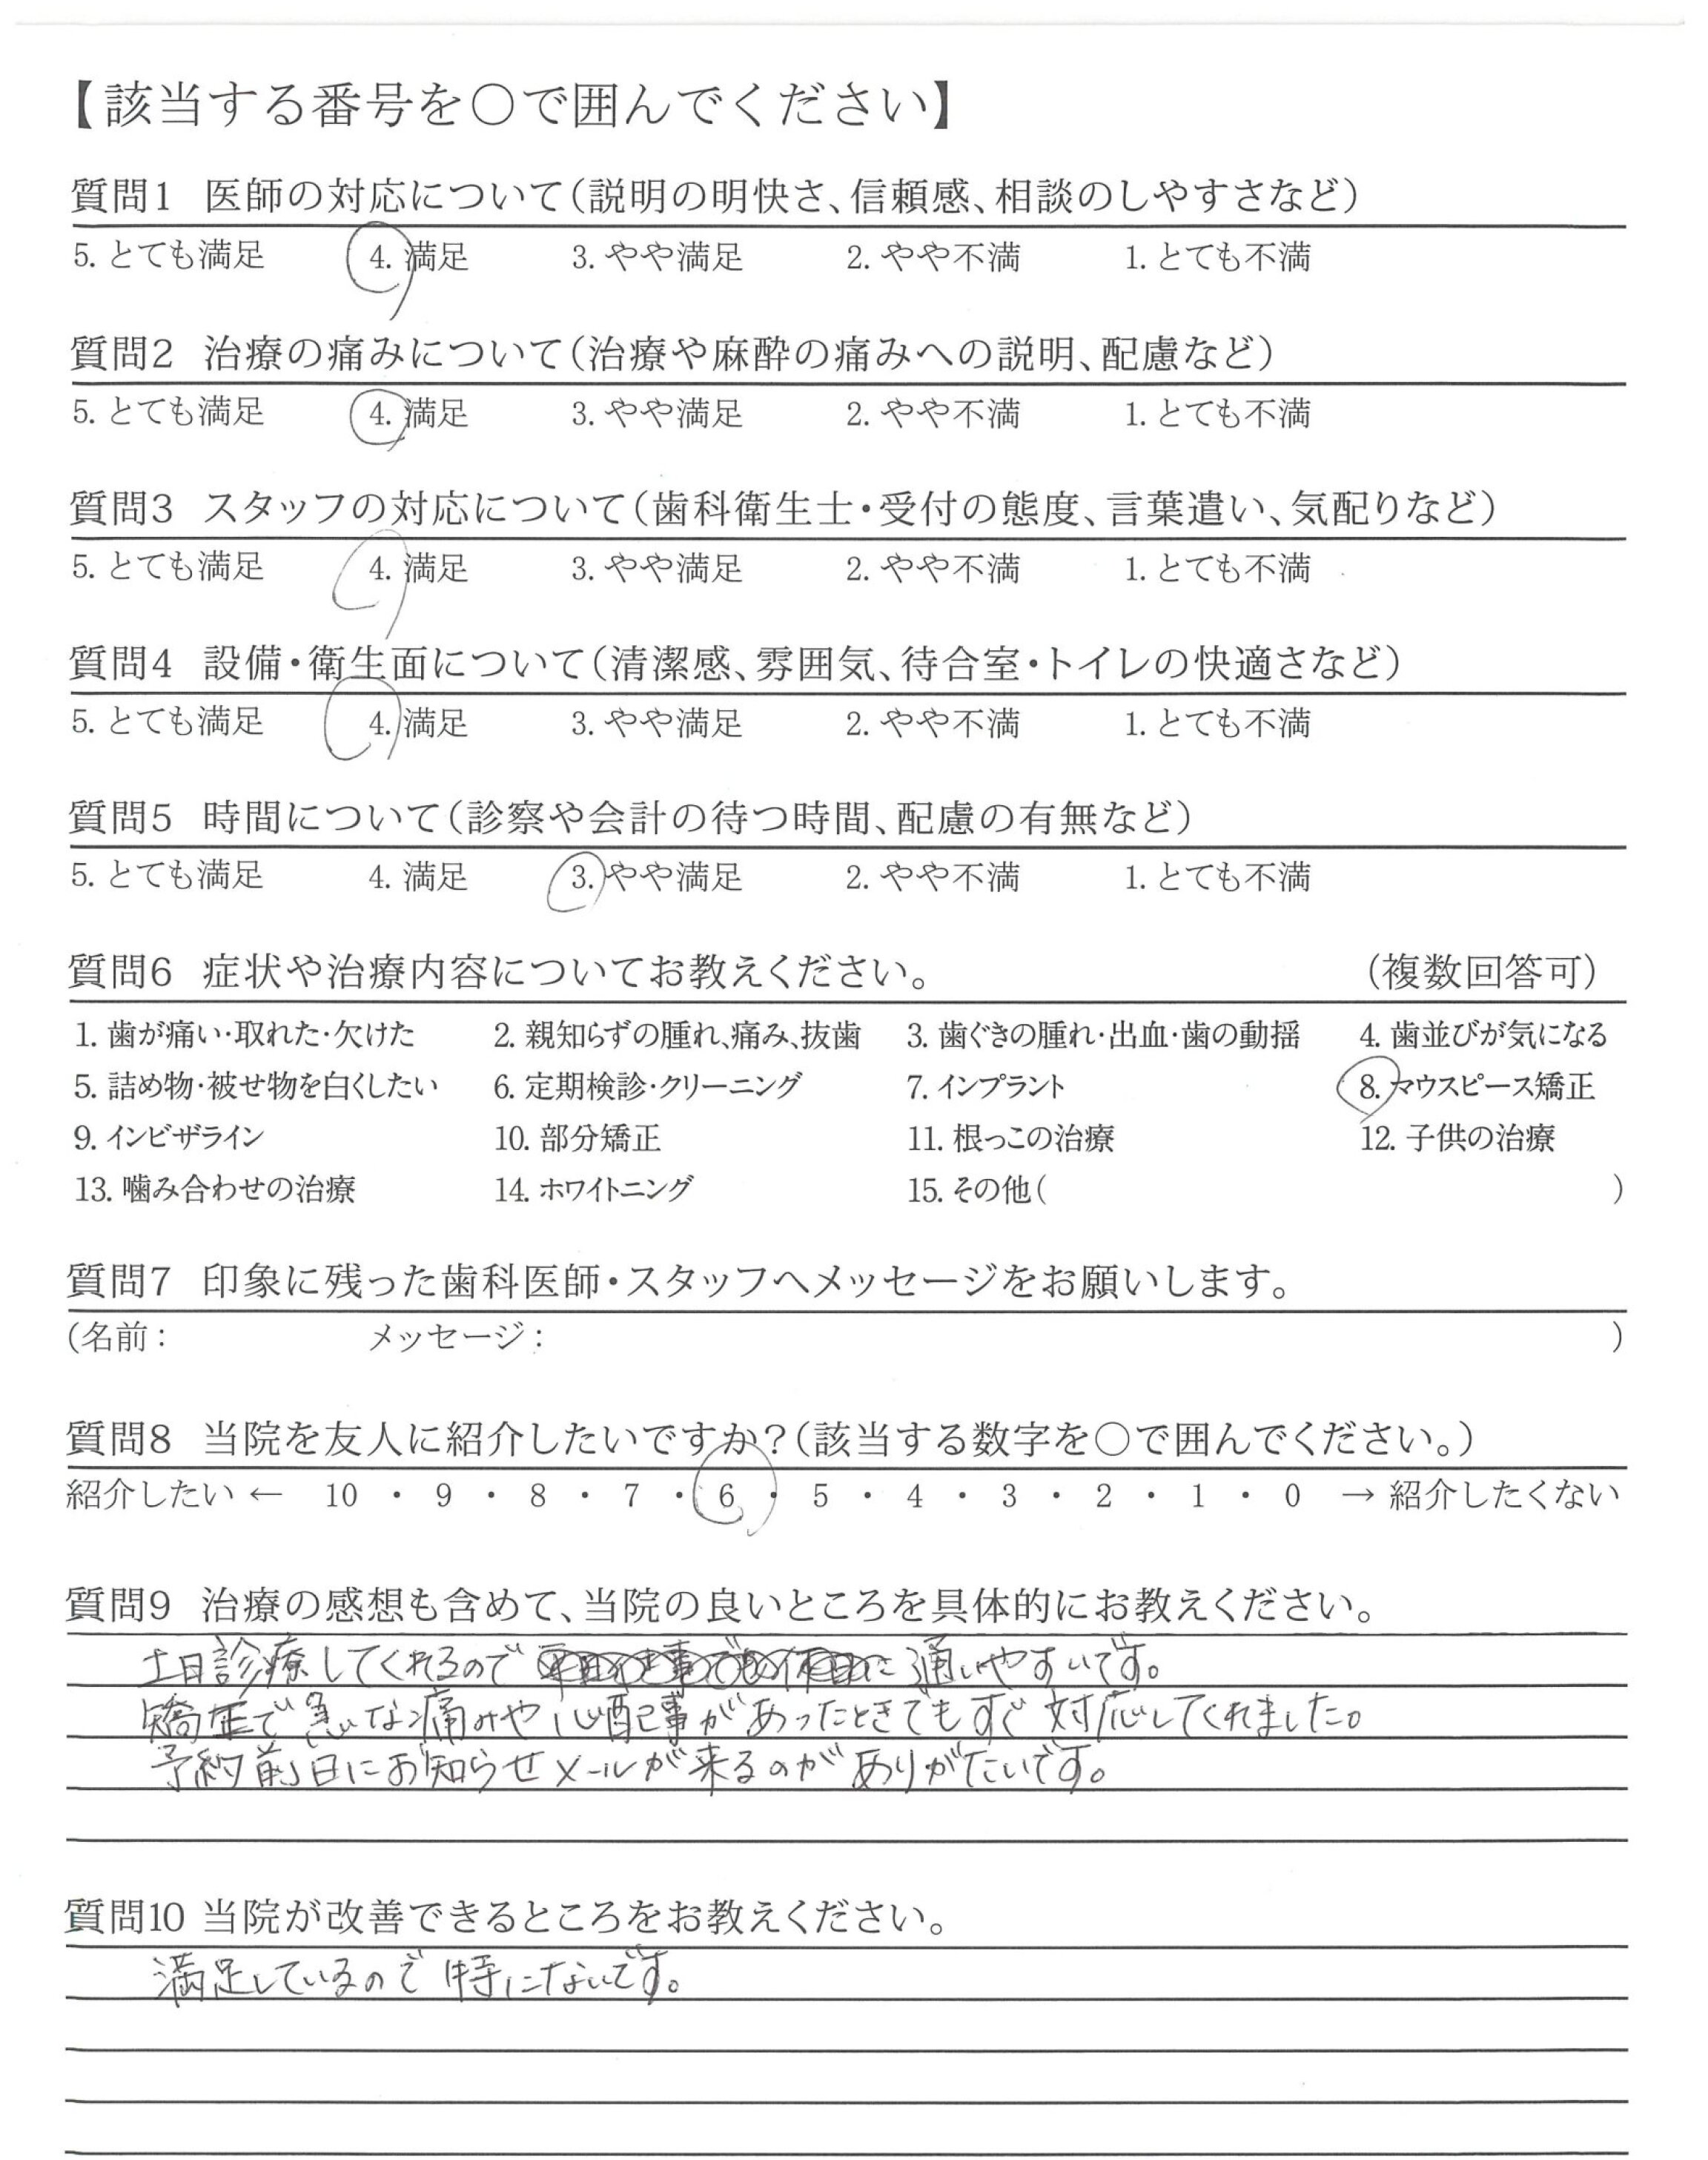 【該当する番号を○で囲んでください】
質問1 医師の対応について(説明の明快さ、信頼感、相談のしやすさなど)
5. とても満足 4. 満足 3. やや満足 2. やや不満 1. とても不満
質問2 治療の痛みについて(治療や麻酔の痛みへの説明、配慮など)
5. とても満足 4. 満足 3. やや満足 2. やや不満 1. とても不満
質問3 スタッフの対応について(歯科衛生士・受付の態度、言葉遣い、気配りなど)
5. とても満足 4. 満足 3. やや満足 2. やや不満 1. とても不満
質問4 設備・衛生面について(清潔感、雰囲気、待合室・トイレの快適さなど)
5. とても満足 4. 満足 3. やや満足 2. やや不満 1. とても不満
質問5 時間について(診察や会計の待つ時間、配慮の有無など)
5. とても満足 4. 満足 3. やや満足 2. やや不満 1. とても不満
質問6 症状や治療内容についてお教えください。 (複数回答可)
1. 歯が痛い・取れた・欠けた 2. 親知らずの腫れ、痛み、抜歯 3. 歯ぐきの腫れ・出血・歯の動揺 4. 歯並びが気になる
5. 詰め物・被せ物を白くしたい 6. 定期検診・クリーニング 7. インプラント 8. マウスピース矯正
9. インビザライン 10. 部分矯正 11. 根っこの治療 12. 子供の治療
13. 噛み合わせの治療 14. ホワイトニング 15. その他( )
質問7 印象に残った歯科医師・スタッフへメッセージをお願いします。
(名前: メッセージ: )
質問8 当院を友人に紹介したいですか?(該当する数字を○で囲んでください。)
紹介したい ← 10 ・ 9 ・ 8 ・ 7 ・ 6 ・ 5 ・ 4 ・ 3 ・ 2 ・ 1 ・ 0 → 紹介したくない
質問9 治療の感想も含めて、当院の良いところを具体的にお教えください。
土日診療してくれるので 通いやすいです。
矯正で急な痛みや心配事があったときでもすぐ対応してくれました。
予約前日にお知らせメールが来るのがありがたいです。
質問10 当院が改善できるところをお教えください。
満足しているので特にないです。